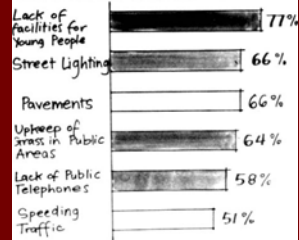 Lack of
facilities for
Young People
77%
Street Lighting
66%
Pavements
66%
Upkeep of
Grass in Public
Areas
64%
Lack of Public
Telephones
58%
Speeding
Traffic
51%